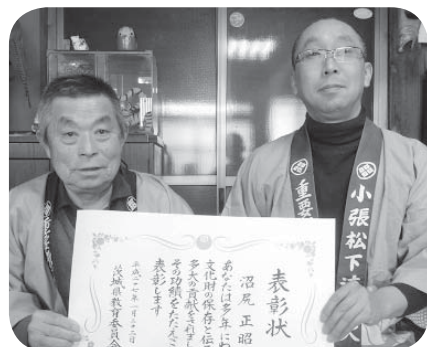 表彰状
沼尻 正昭
あなたは多年にわ
文化財の保存と伝
多大の貢献をされまし
その功績をたたえこ
表彰します
平成二十七年一月二十二日
茨城県教育委員会
重要
小張松下流